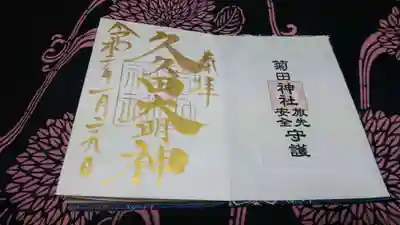 菊田神社
旅先
安全
守護
奉拝
久久田大明神
令和二年一月二九日